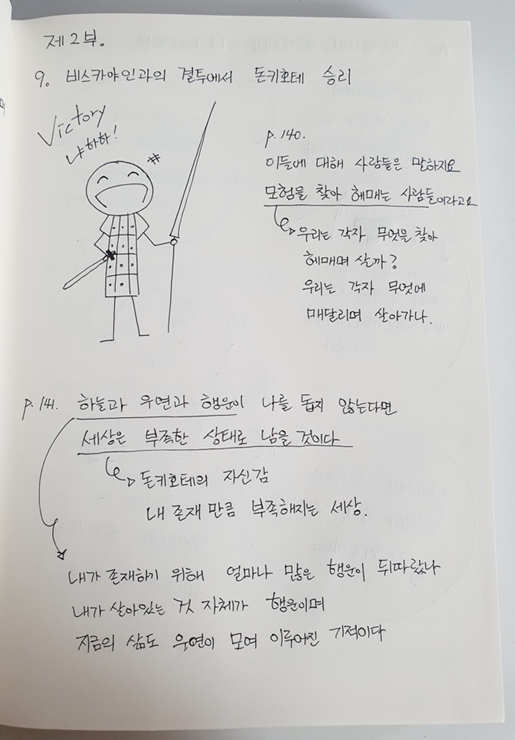 제2부.
9. 비스카야인과의 결투에서 돈키호테 승리
Victory
냐하하!
p.140.
이들에 대해 사람들은 말하지요
모험을 찾아 헤매는 사람들이라고요
우리는 각자 무엇을 찾아
헤매며 살까?
우리는 각자 무엇에
매달리며 살아가나.
p.141. 하늘과 우연과 행운이 나를 돕지 않는다면
세상은 부족한 상태로 남을 것이다
돈키호테의 자신감
내 존재 만큼 부족해지는 세상.
내가 존재하기 위해 얼마나 많은 행운이 뒤따랐나
내가 살아있는 것 자체가 행운이며
지금의 삶도 우연이 모여 이루어진 기적이다